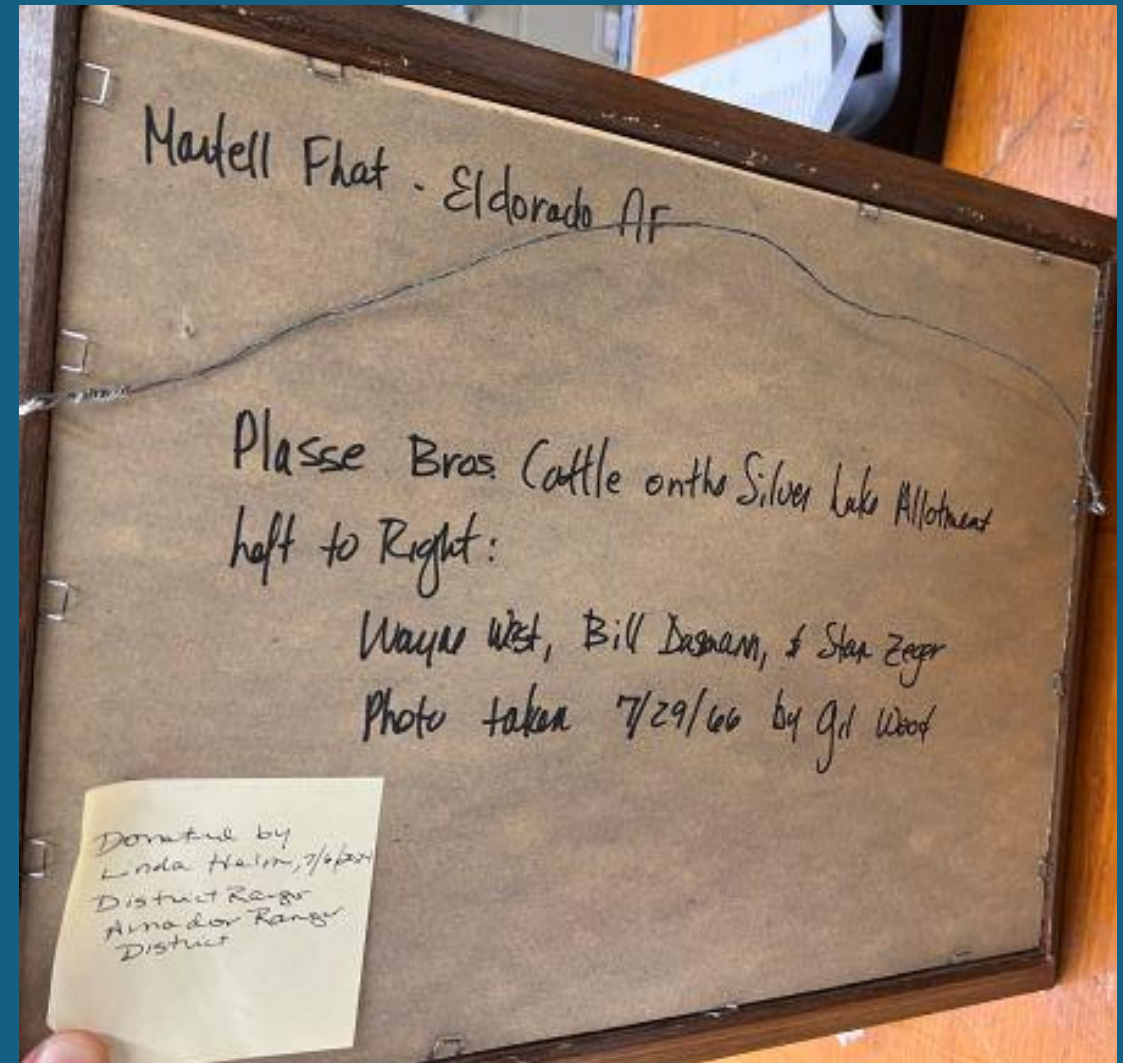 Martell Flat - Eldorado NF
Plasse Bros. Cattle on the Silver Lake Allotment
Left to Right:
Wayne West, Bill Dasmann, & Stan Zeger
Photo taken 7/29/66 by Gil Wood
Donated by
Linda Helm, 7/6/2021
District Ranger
Amador Ranger
District